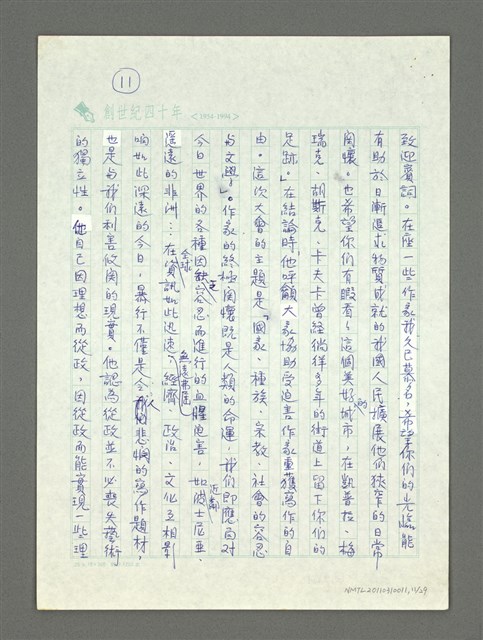 11
創世紀四十年 <1954-1994>
致迎賓詞。在座一些作家我久已慕名,希望你們的光臨能
有助於日漸追求物質成就的我國人民擴展他們狹窄的日常
關懷。也希望你們有暇看看這個美好的城市,在凱普拉、梅
瑞克、胡斯克、卡夫卡曾經徜徉多年的街道上留下你們的
足跡。」在結論時他呼籲大家協助受迫害作家重獲寫作的自
由。這次大會的主題是「國家、種族、宗教、社會的容忍
與文學」。作家的終極關懷既是人類的命運,我們即應面對
今日世界的各種因缺乏容忍而進行的血腥迫害,如波士尼亞、
遙遠的非洲⋯在全球資訊如此迅速、經濟、政治、文化互相影
響如此深遠的今日,暴行不僅是令人悲憫的寫作題材,
也是與我們利害攸關的現實。他認為從政並不必喪失藝術
的獨立性。他自己因理想而從政,因從政而能實現一些理
NMTL20110310011,11/29